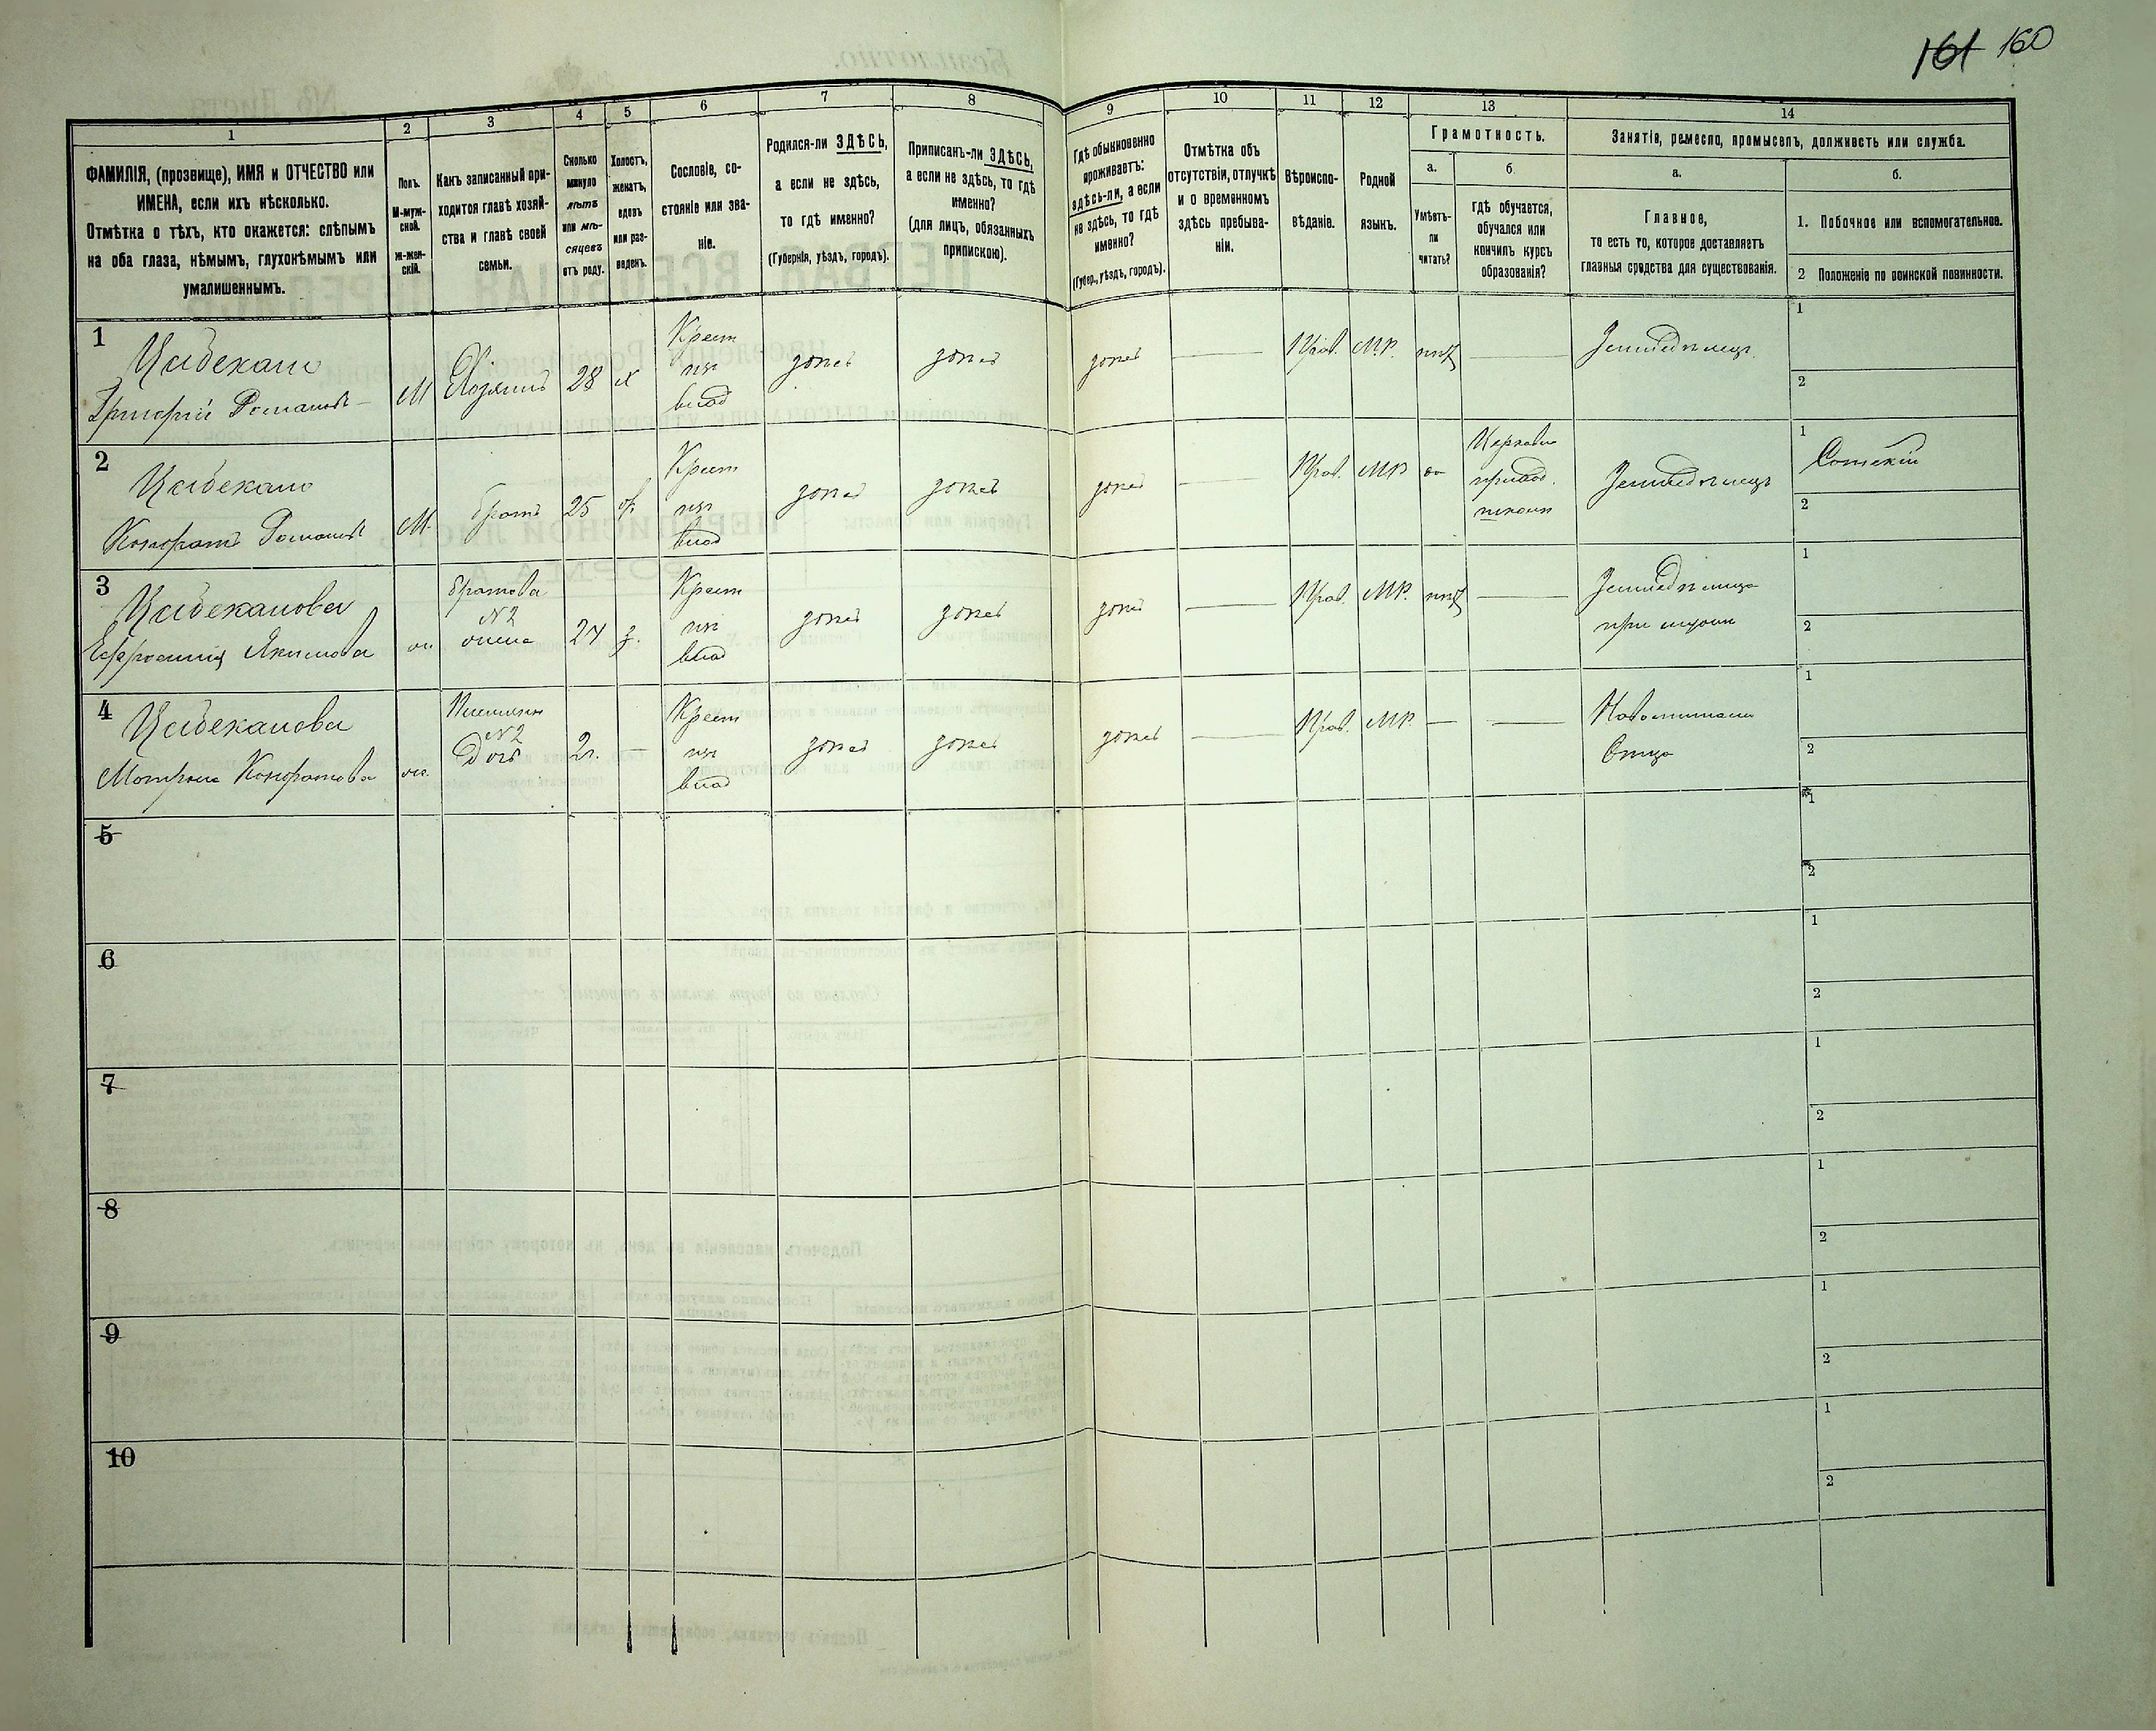 161 160
1
2
3
4
5
6
7
8
9
10
11
12
13
14
ФАМИЛІЯ, (прозвище), ИМЯ и ОТЧЕСТВО или
ИМЕНА, если ихъ нѣсколько.
Отмѣтка о тѣхъ, кто окажется: слѣпымъ
на оба глаза, нѣмымъ, глухонѣмымъ или
умалишеннымъ.
Полъ.
М-муж-
ской.
ж-жен-
скій.
Какъ записанный при-
ходится главѣ хозяй-
ства и главѣ своей
семьи.
Сколько
минуло
лѣтъ
или мѣ-
сяцевъ
отъ роду.
Холостъ,
женатъ,
вдовъ
или раз-
веденъ.
Сословіе, со-
стояніе или зва-
ніе.
Родился-ли ЗДѢСЬ,
а если не здѣсь,
то гдѣ именно?
(Губернія, уѣздъ, городъ).
Приписанъ-ли ЗДѢСЬ,
а если не здѣсь, то гдѣ
именно?
(для лицъ, обязанныхъ
припискою).
Гдѣ обыкновенно
проживаетъ:
здѣсь-ли, а если
не здѣсь, то гдѣ
именно?
(Губер., уѣздъ, городъ).
Отмѣтка объ
отсутствіи, отлучкѣ
и о временномъ
здѣсь пребыва-
ніи.
Вѣроиспо-
вѣданіе.
Родной
языкъ.
Грамотность.
а.
Умѣетъ-
ли
читать?
б.
гдѣ обучается,
обучался или
кончилъ курсъ
образованія?
Занятія, ремесло, промыселъ, должность или служба.
а.
Главное,
то есть то, которое доставляетъ
главныя средства для существованія.
б.
1. Побочное или вспомогательное.
2 Положеніе по воинской повинности.
1
Григорій Романовъ
М
Хозяинъ
28
х
Крест
изъ
влад
здѣсь
здѣсь
здѣсь
Прав.
М.Р.
нѣтъ
Земледѣлецъ
1
2
2
Кондратъ Романовъ
М.
братъ
25
Крест
изъ
влад
здѣсь
здѣсь
здѣсь
Прав.
МР
да
Церковно
приход.
школѣ
Земледѣлецъ
1
Сотскій
2
3
Ефросинія Якимова
ж.
братова
№2
жена
24
з.
Крест
изъ
влад
здѣсь
здѣсь
здѣсь
Прав.
МР.
нѣтъ
Земледѣлица
при мужѣ
1
2
4
Мотрона Кондратова
ж.
№2
Дочь
2г.
Крест
изъ
влад
здѣсь
здѣсь
здѣсь
Прав.
МР.
Отца
1
2
5
1
2
6
1
2
7
1
2
8
1
2
9
1
2
10
1
2